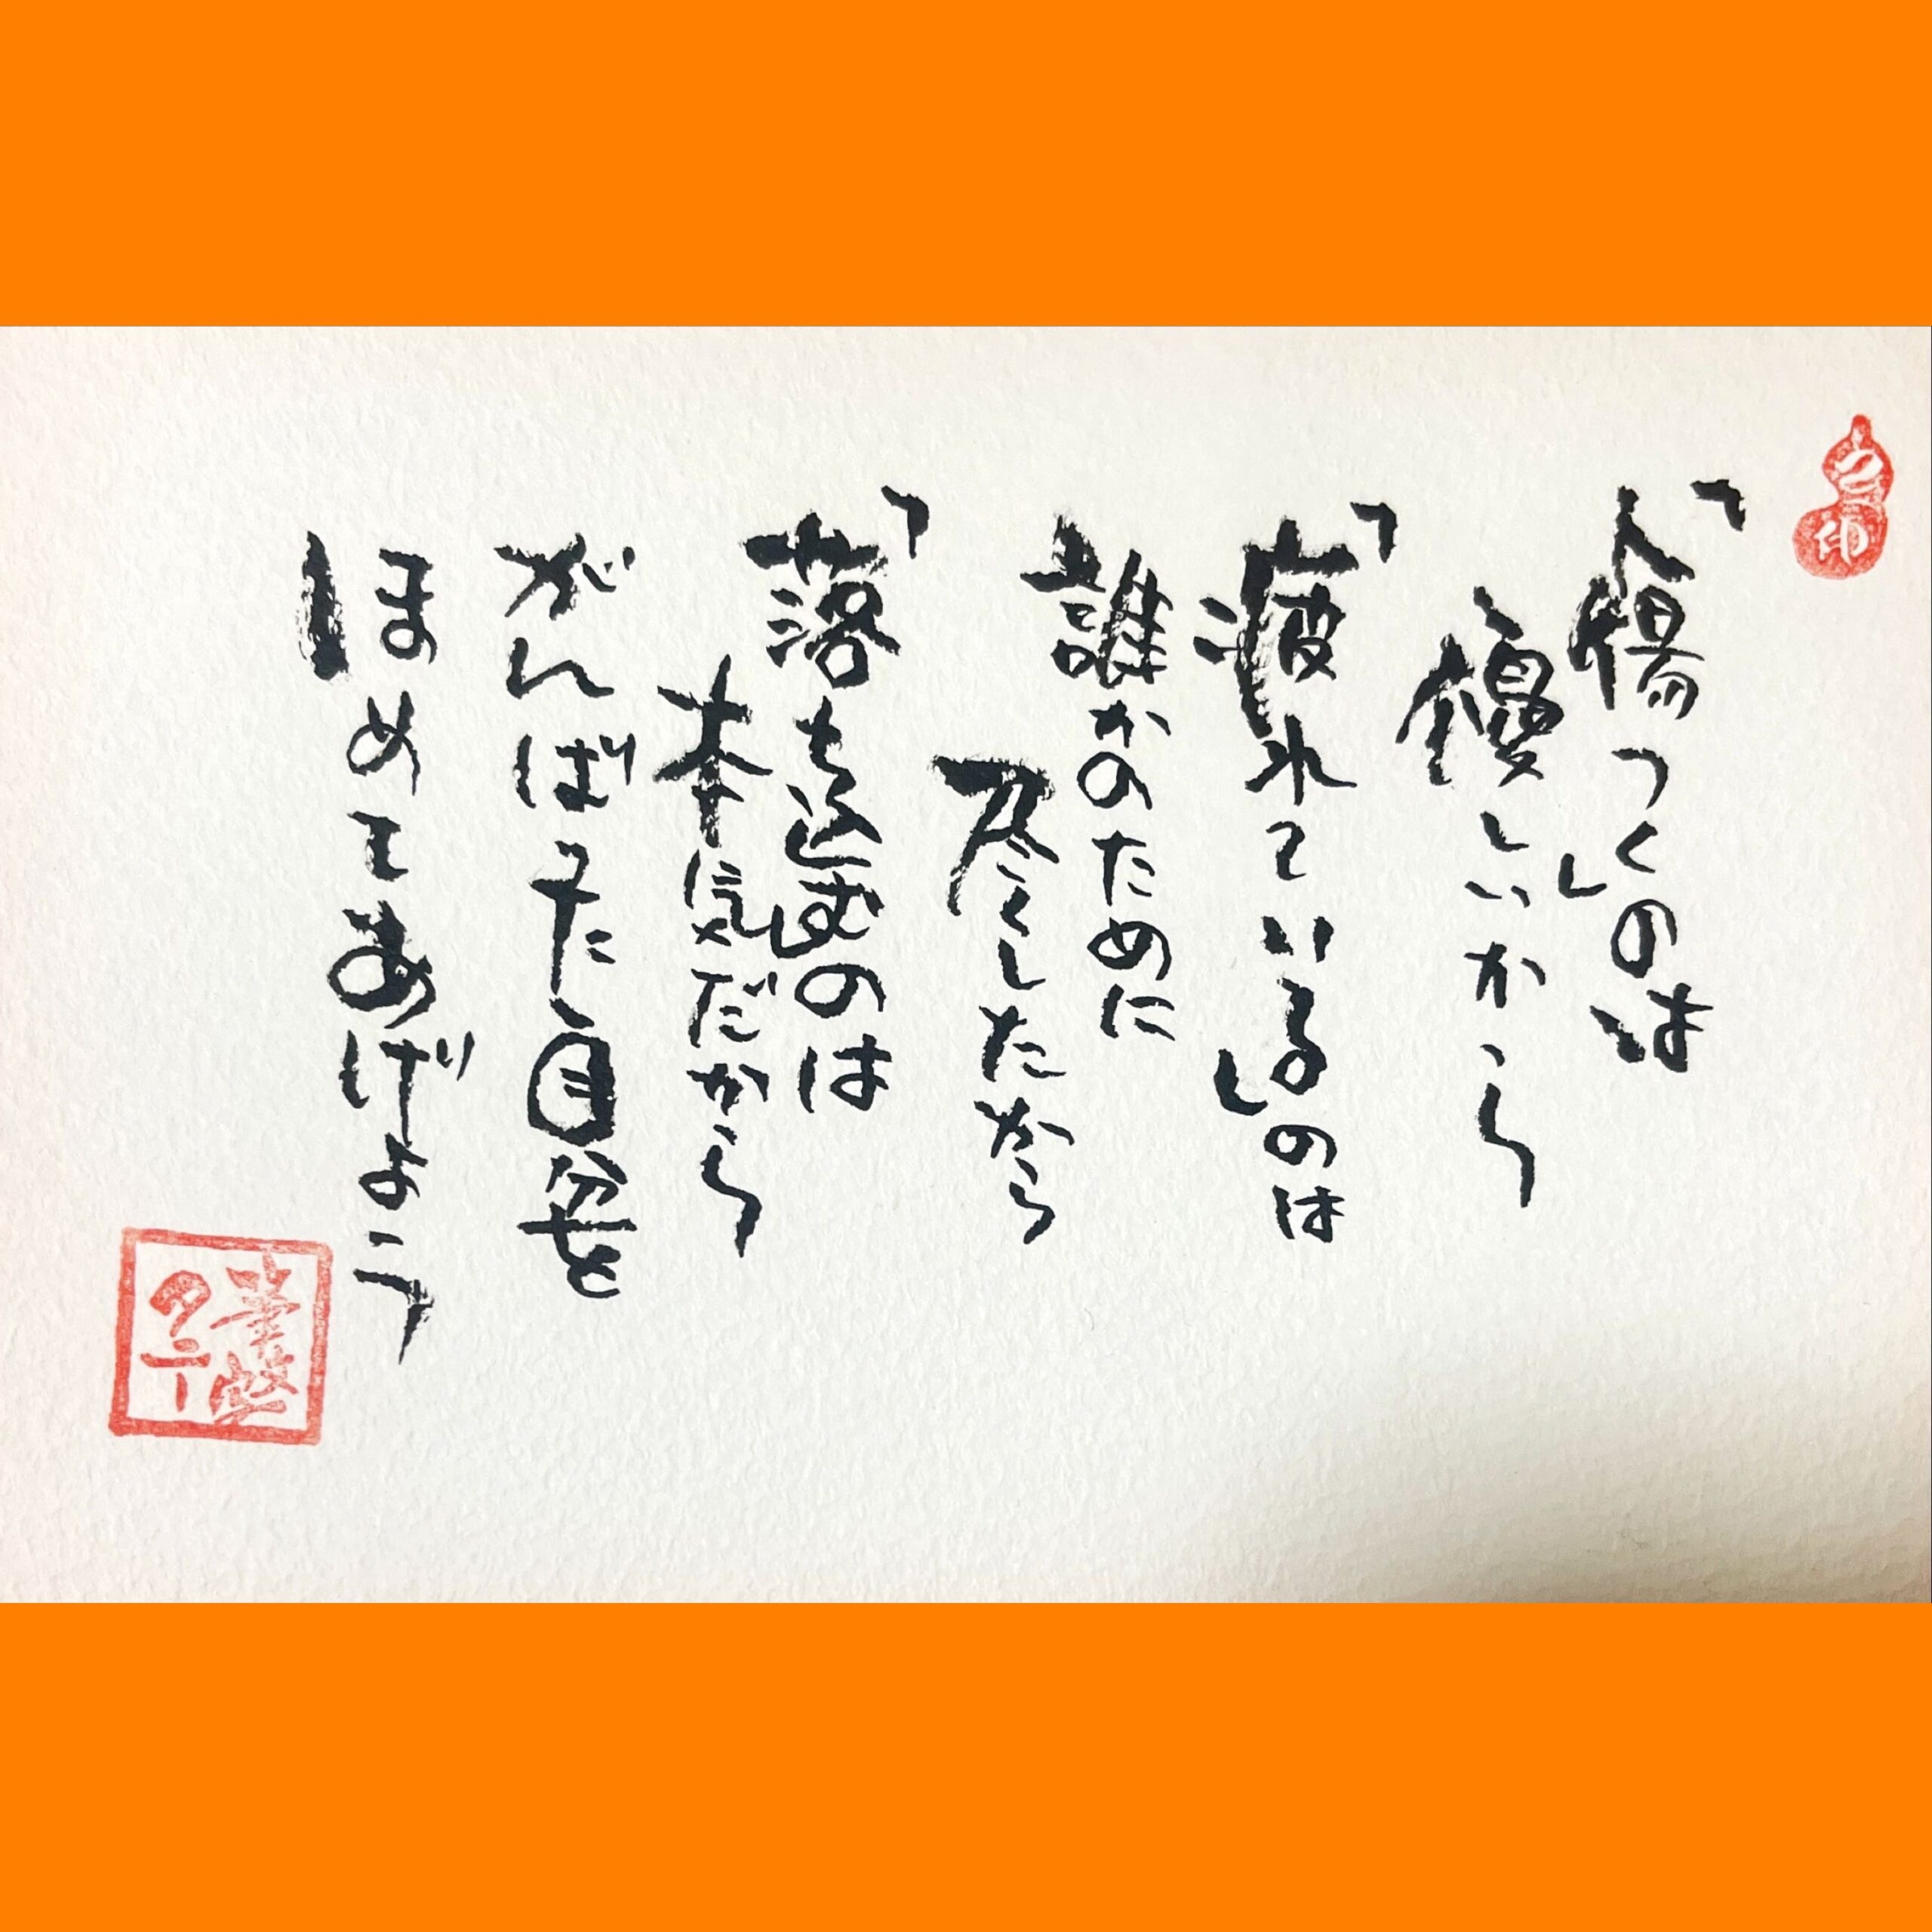 「傷つく」のは
優しいから
「疲れている」のは
誰かのために
尽くしたから
「落ち込む」のは
本気だから
がんばった自分を
ほめてあげよう
印
タニー